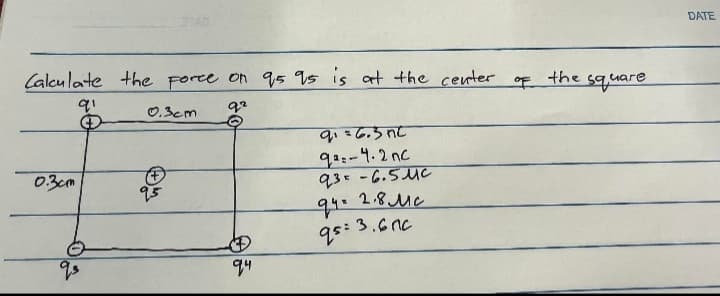 DATE
Calculate the force on q5 q5 is at the center of the square
q1 0.3cm q2
+ -
q1 = 6.3 nC
q2 = -4.2 nC
0.3cm + q3 = -6.5 MC
q5 q4 = 2.8 MC
q5 = 3.6 nC
- +
q3 q4